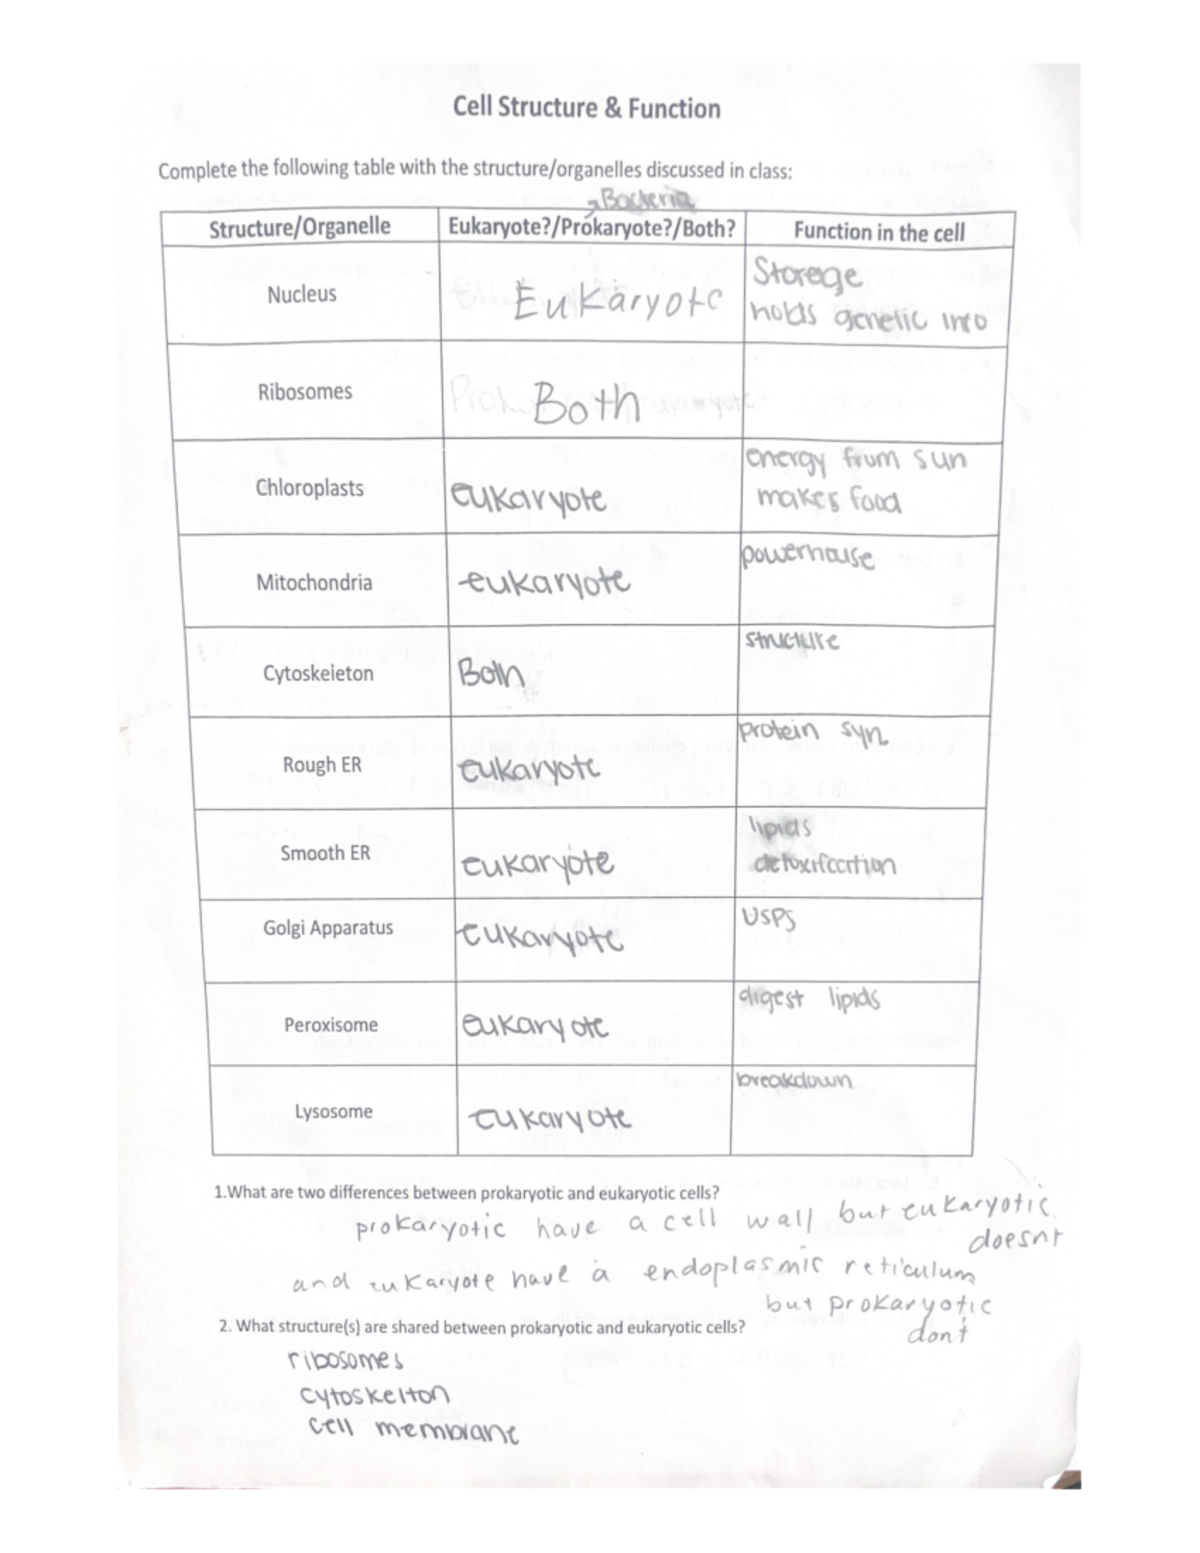 Cell Structure & Function
Complete the following table with the structure/organelles discussed in class:
Bacteria
Structure/Organelle Eukaryote?/Prokaryote?/Both? Function in the cell
Nucleus Eukaryote Storege
holds genetic info
Ribosomes Both
Chloroplasts eukaryote energy from sun
makes food
Mitochondria eukaryote powerhouse
Cytoskeleton Both structure
Rough ER eukaryote protein syn.
Smooth ER eukaryote lipids
detoxifcation
Golgi Apparatus eukaryote USPS
Peroxisome eukaryote digest lipids
Lysosome eukaryote breakdown
1.What are two differences between prokaryotic and eukaryotic cells?
prokaryotic have a cell wall but eukaryotic
doesnt
and eukaryote have a endoplasmic reticulum
but prokaryotic
dont
2. What structure(s) are shared between prokaryotic and eukaryotic cells?
ribosomes
cytoskelton
cell membrane